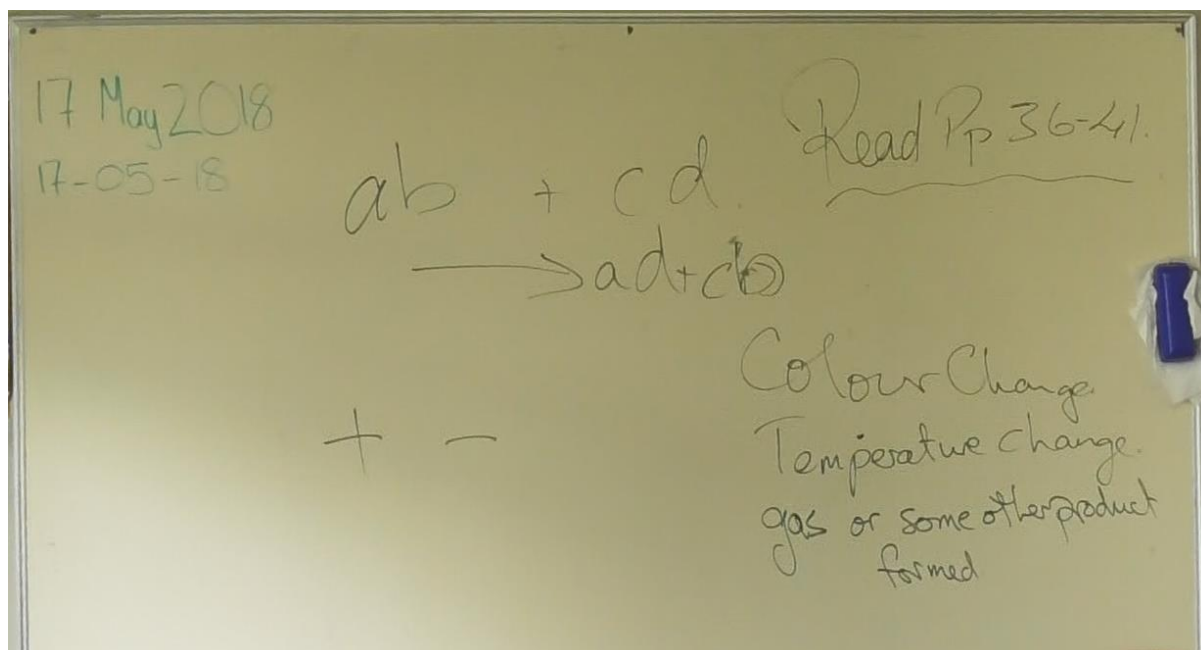 17 May 2018
17-05-18
Read Pp 36-41.
ab + cd.
→ ad+cb
+ -
Colour Change.
Temperature change.
gas or some other product
formed